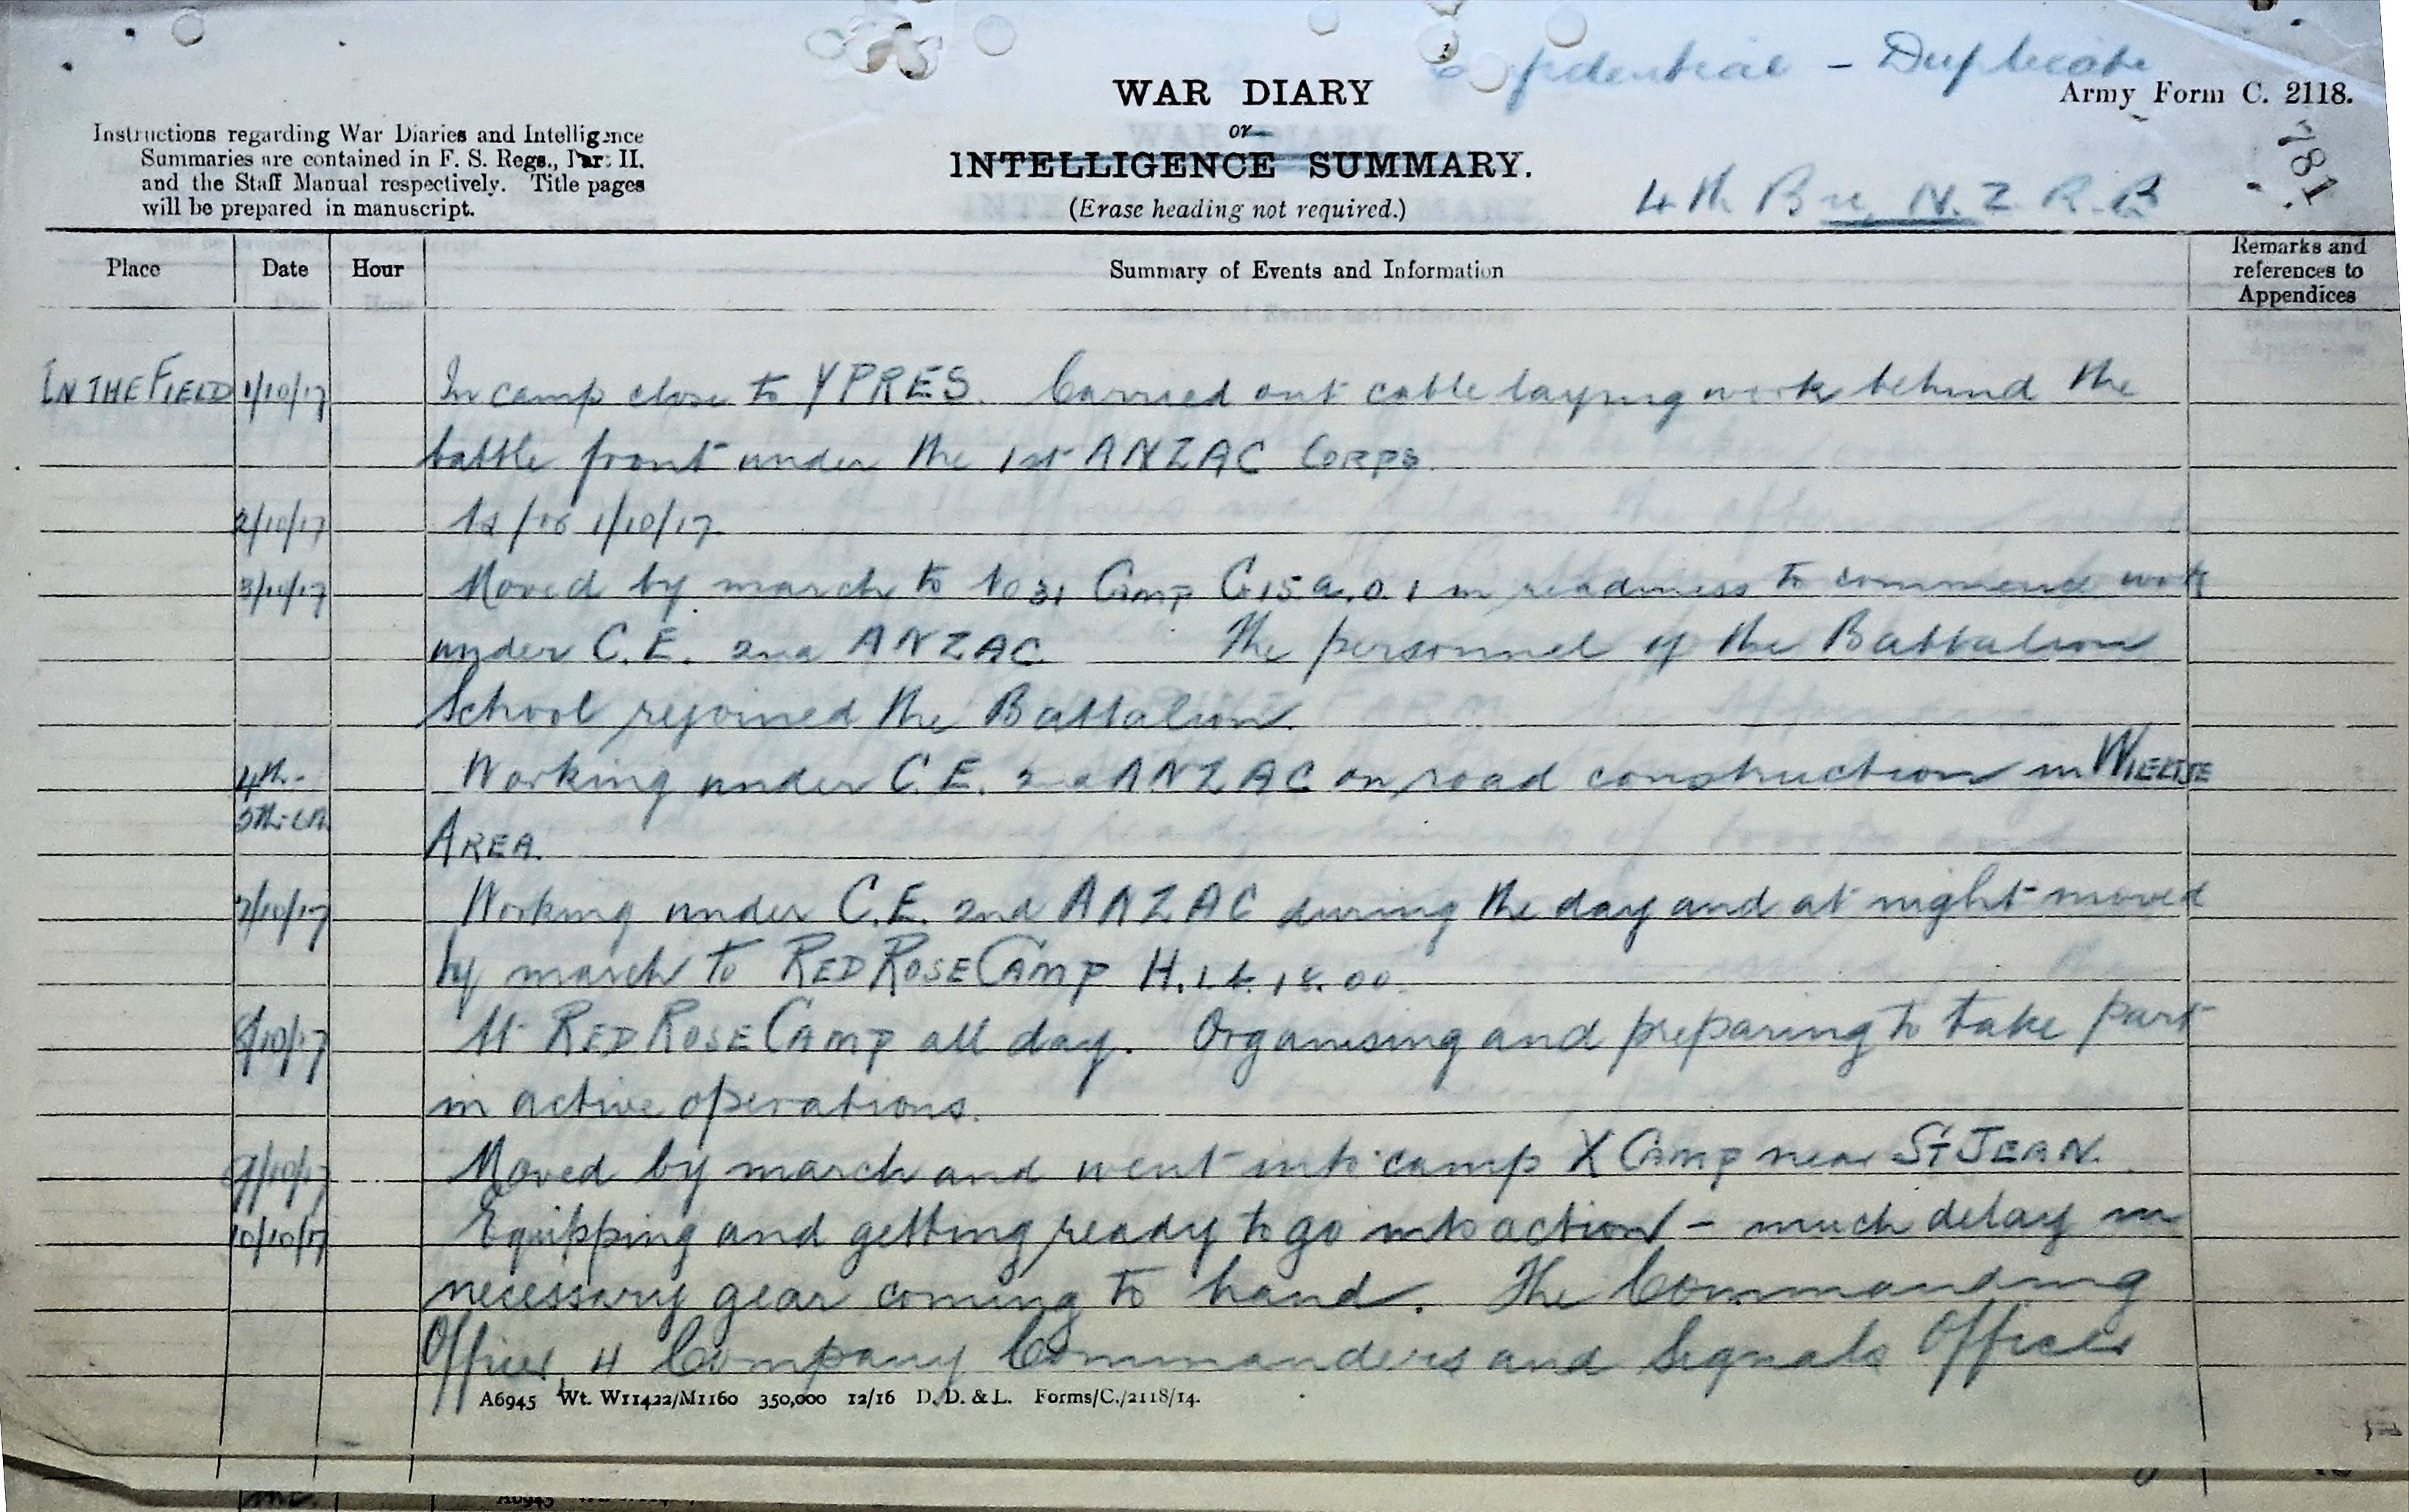 Confidential - Duplicate
WAR DIARY
or
INTELLIGENCE SUMMARY.
(Erase heading not required.)
Army Form C. 2118.
Instructions regarding War Diaries and Intelligence
Summaries are contained in F. S. Regs., Part II.
and the Staff Manual respectively. Title pages
will be prepared in manuscript.
4th Bn. N.Z.R.B
781
Place Date Hour Summary of Events and Information Remarks and
references to
Appendices
IN THE FIELD 1/10/17 In camp close to YPRES. Carried out cable laying work behind the
battle front under the 1st ANZAC CORPS.
2/10/17 As for 1/10/17.
3/10/17 Moved by march to No 31 CAMP C.15.a.0.1 in readiness to commence work
under C.E. 2nd ANZAC The personnel of the Battalion
School rejoined the Battalion.
4th- Working under C.E. 2nd ANZAC on road construction in WIELTJE
5th-6th AREA.
7/10/17 Working under C.E. 2nd ANZAC during the day and at night moved
by march to RED ROSE CAMP H.1.b.18.00.
8/10/17 At RED ROSE CAMP all day. Organising and preparing to take part
in active operations.
9/10/17 Moved by march and went into camp X CAMP near ST JEAN.
10/10/17 Equipping and getting ready to go into action - much delay in
necessary gear coming to hand. The Commanding
Officer, 4 Company Commanders and Signals Officer
A6945 Wt. W11422/M1160 350,000 12/16 D. D. & L. Forms/C./2118/14.
A6945